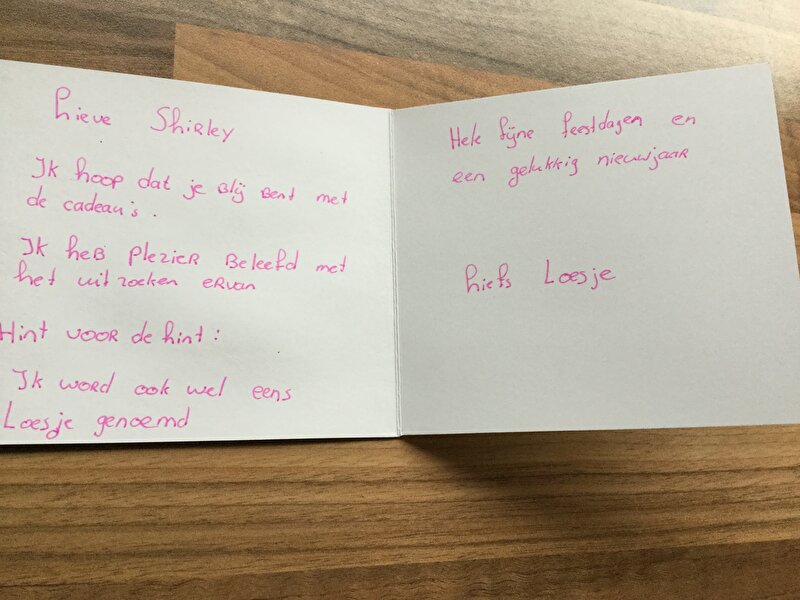 Lieve Shirley
Ik hoop dat je Blij Bent met
de cadeau's.
Ik heB PlezieR Beleefd met
het uitzoeken eRvan
Hint vooR de hint:
Ik woRd ook wel eens
Loesje genoemd
Hele fijne feestdagen en
een gelukkig nieuwjaaR
Liefs Loesje